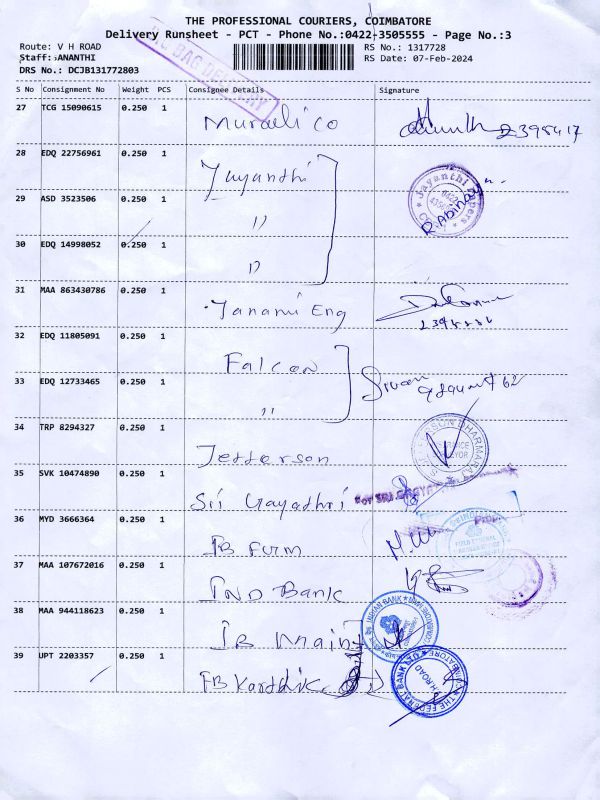 THE PROFESSIONAL COURIERS, COIMBATORE
Delivery Runsheet - PCT - Phone No.:0422-3505555 - Page No.:3
Route: V H ROAD
RS No.: 1317728
Staff: ANANTHI
RS Date: 07-Feb-2024
DRS No.: DCJB131772803
BAG DELIVERY
S No Consignment No Weight PCS Consignee Details Signature
27 TCG 15090615 0.250 1 Murali co
28 EDQ 22756961 0.250 1 Jayandhi
29 ASD 3523506 0.250 1 "
Jayanthi Papers
30 EDQ 14998052 0.250 1 "
31 MAA 863430786 0.250 1 Tanami Eng
32 EDQ 11805091 0.250 1 Falcon
33 EDQ 12733465 0.250 1 "
34 TRP 8294327 0.250 1 Jefferson
35 SVK 10474890 0.250 1 Sri Gayadhri
For SRI
36 MYD 3666364 0.250 1 IB Furm
37 MAA 107672016 0.250 1 IND Bank
38 MAA 944118623 0.250 1 IB Main
INDIAN BANK
39 UPT 2203357 0.250 1 FB Karthik
THE FEDERAL BANK LTD